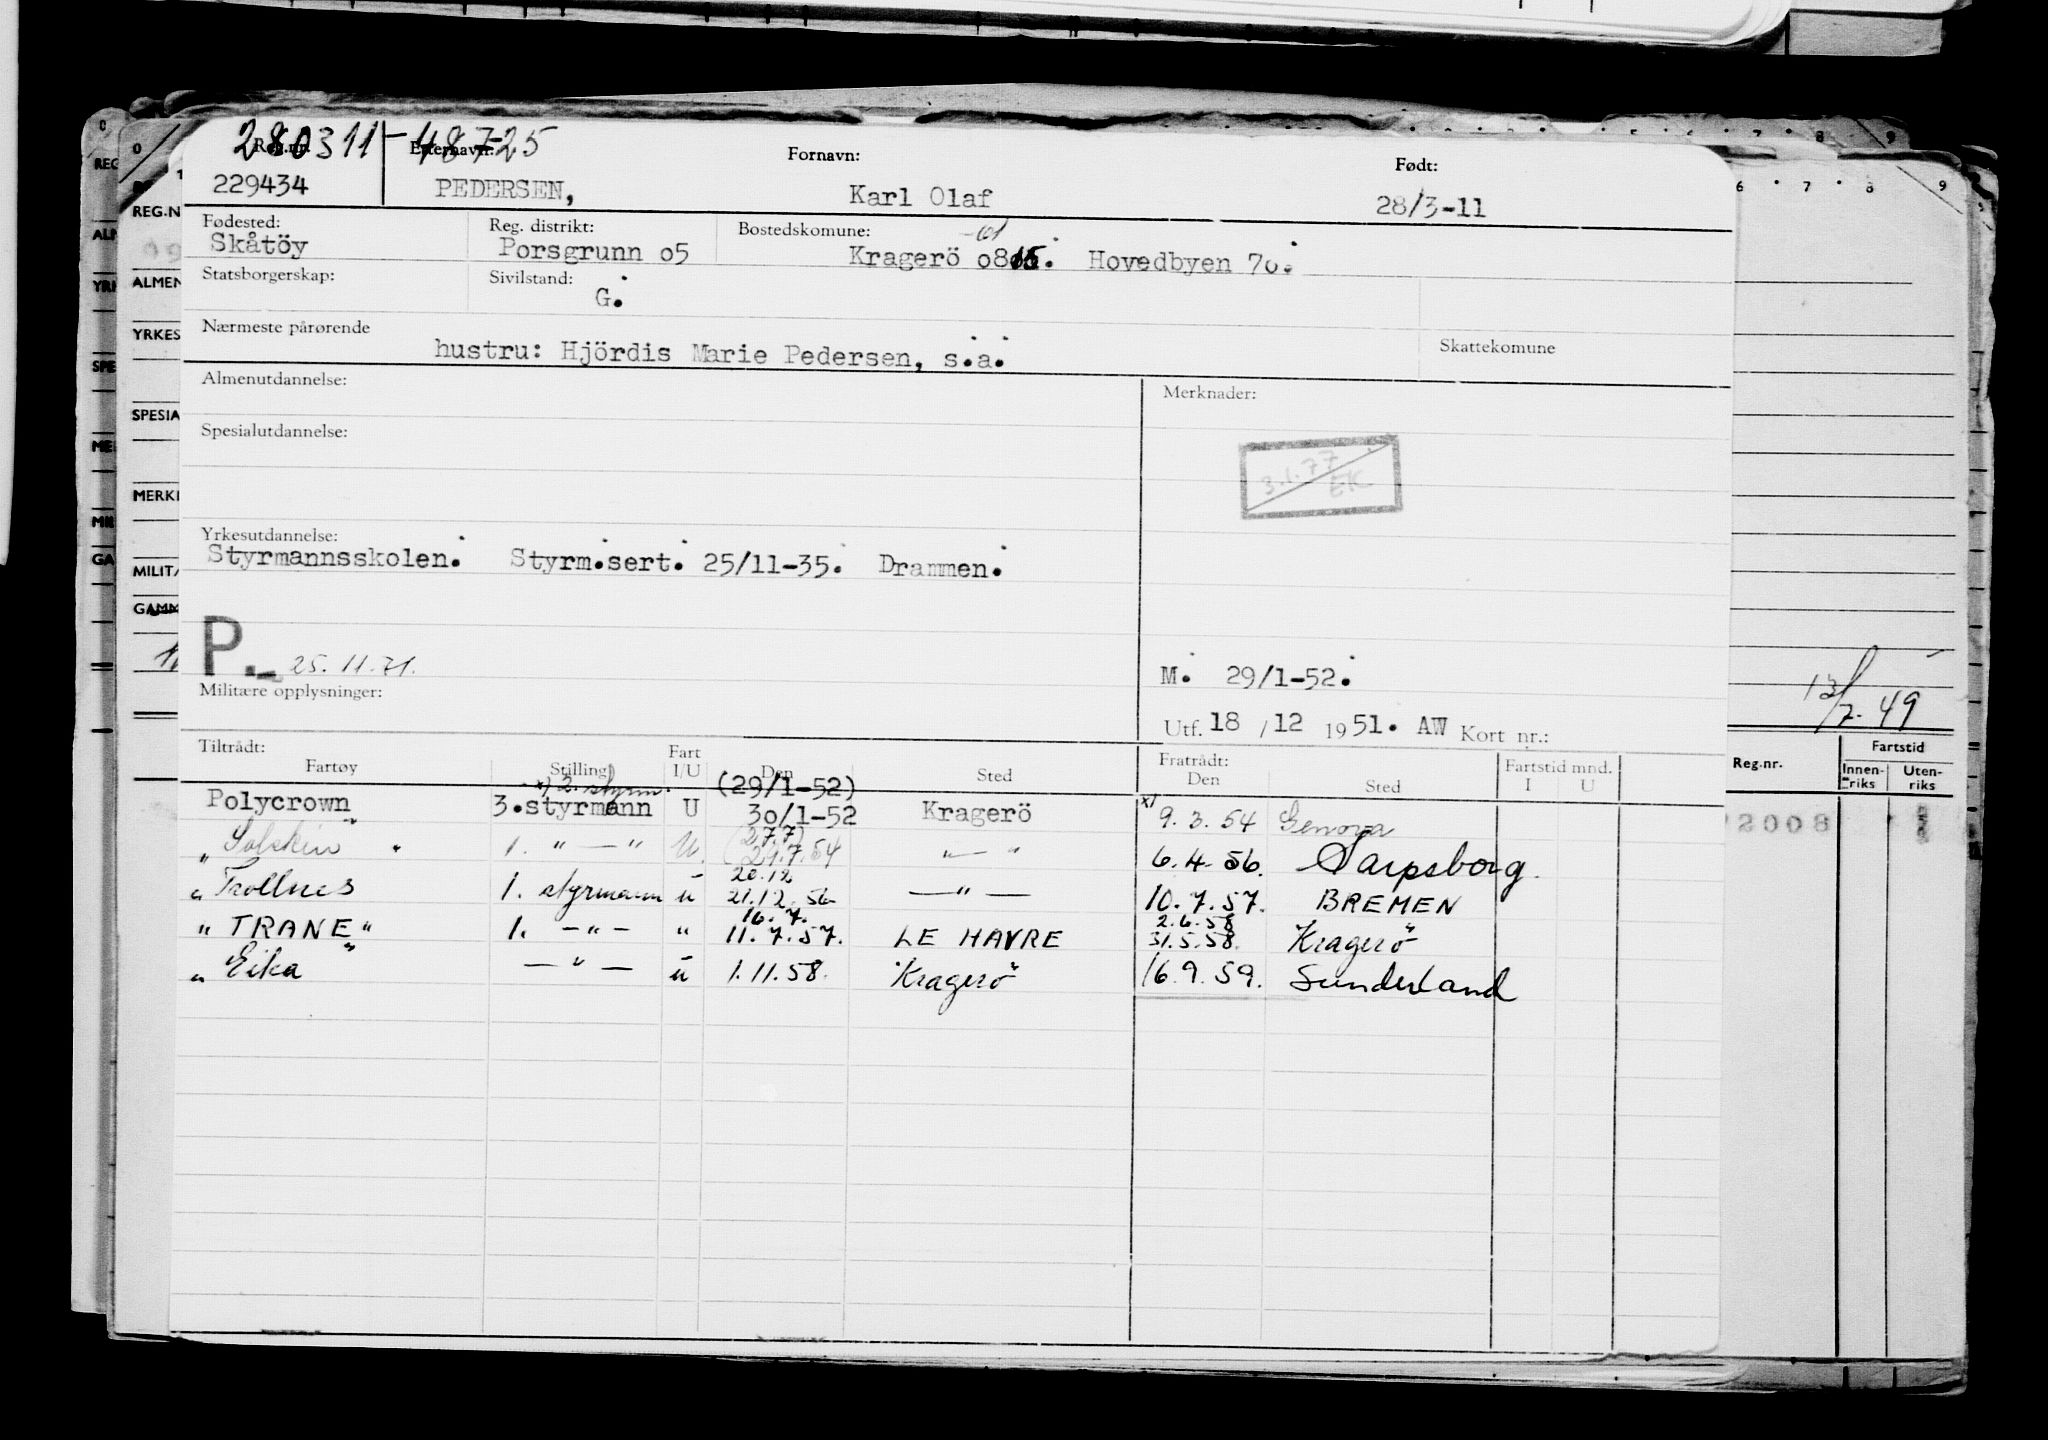 280311-48725
Reg.nr. Etternavn: Fornavn: Født:
229434 PEDERSEN, Karl Olaf 28/3-11
Fødested: Reg. distrikt: Bostedskomune:
Skåtöy Porsgrunn o5 Kragerö Hovedbyen 7o.
Statsborgerskap: Sivilstand:
G.
Nærmeste pårørende Skattekomune
hustru: Hjördis Marie Pedersen, s.a.
Almenutdannelse: Merknader:
Spesialutdannelse:
3.1.77
EK
Yrkesutdannelse:
Styrmannsskolen. Styrm.sert. 25/11-35. Drammen.
P.- 25.11.71.
M. 29/1-52.
Militære opplysninger:
Utf. 18 / 12 1951. AW Kort nr.:
Tiltrådt: Fratrådt:
Fartøy Stilling Fart I/U Den Sted Den Sted Fartstid mnd. I U
x) 2. styrm. (29/1-52)
Polycrown 3.styrmann U 3o/1-52 Kragerö x) 9.3.54 Genova
(27.7)
"Solskin" 1. "—" U. 21.7.54 "—" 6.4.56. Sarpsborg.
20.12
"Trollnes 1. styrmann u 21.12.56 —"— 10.7.57. BREMEN
16.7. 2.6.58
"TRANE" 1. -"- " 11.7.57. LE HAVRE 31.5.58. Kragerö
"Eika" —"— u 1.11.58. Kragerö 16.9.59. Sunderland
REG.N
ALMEN
YRKES
SPESIA
MERKI
MILIT
GAMM
13/7-49
Reg.nr. Fartstid
Innen-riks Uten-riks
2008